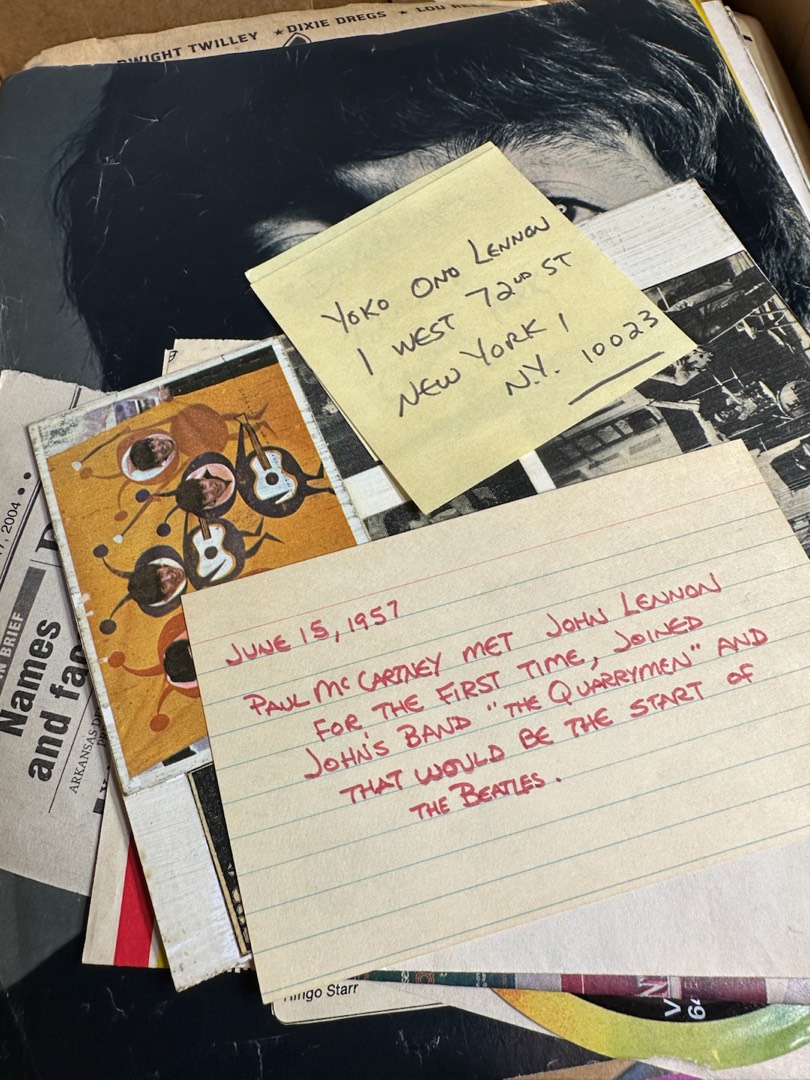 DWIGHT TWILLEY ★ DIXIE DREGS ★ LOU
YOKO ONO LENNON
1 WEST 72ND ST
NEW YORK 1
N.Y. 10023
2004
N BRIEF
Names
and
ARKANSAS
JUNE 15, 1957
PAUL McCARTNEY MET JOHN LENNON
FOR THE FIRST TIME, JOINED
JOHN'S BAND "THE QUARRYMEN" AND
THAT WOULD BE THE START OF
THE BEATLES.
Ringo Starr